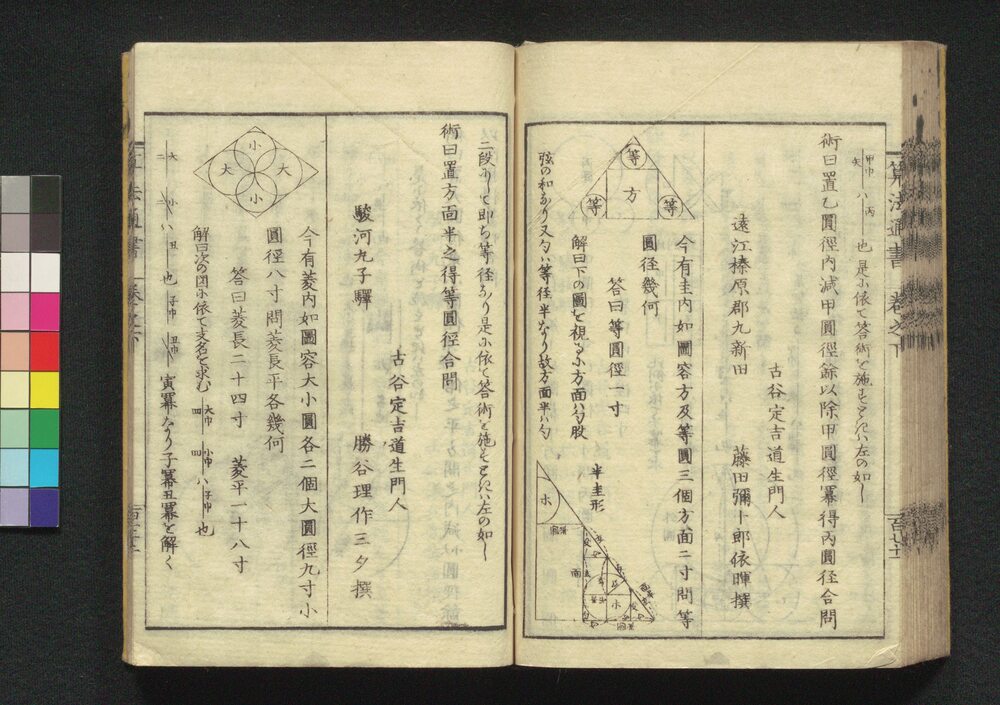 術曰置乙圓徑內減甲圓徑餘以除甲圓徑冪得丙圓径合問
也 是小依て答術を施もとれハ左の如し
古谷定吉道生門人
遠江榛原郡九新田 藤田彌卜郎依暉撰
今有圭内如圖容方及等圓三個方面二寸問等
圓径幾何
答曰等圓徑一寸
解曰下の圖を視るふ方面ハ勾股
弦の和なり又勾ハ等径半なり故方面半ハ勾
等
方
等
等
半圭形
二段ふして即ち等径なり是小依て答術を施もとれハ左の如し
術曰置方面半之得等圓徑合問
古谷定吉道生門人
駿河九子驛 勝谷理作三夕撰
今有菱内如圖容大小圓各二個大圓徑九寸小
圓徑八寸問菱長平各幾何
答曰菱長二十四寸 菱平一十八寸
解曰次の図小依て支名を求む
也
寅冪なり子冪丑冪を解く
小
大
大
小
算法通書
卷之下